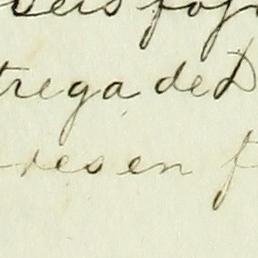 seis foj
trega de D
res en f